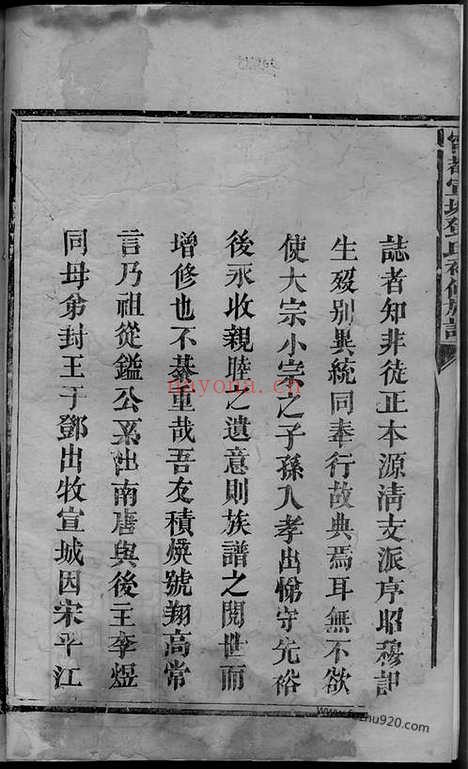 誌者知非徒正本源清支派序昭穆記
生歿别異統同奉行故典焉耳無不欲
使大宗小宗之子孫入孝出悌守先裕
後永收親睦之遺意則族譜之閱世而
增修也不綦重哉吾友積煥號翔高常
言乃祖從鎰公系出南唐與後主李煜
同母弟封王于鄧出牧宣城因宋平江
nayona.cn
www.fozhu920.com